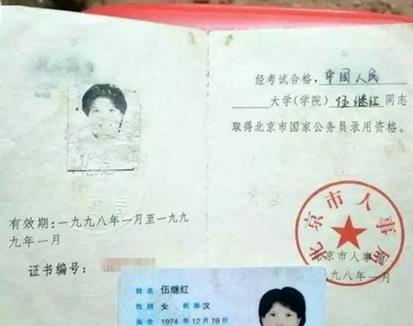 经考试合格，中国人民
大学(学院)伍继红同志
取得北京市国家公务员录用资格。
有效期：一九九八年一月至一九九
九年一月
证书编号：
北京市人事局
京市人事
九八年一月
姓名 伍继红
性别 女 民族 汉
出生 1974 年 12 月 19 日